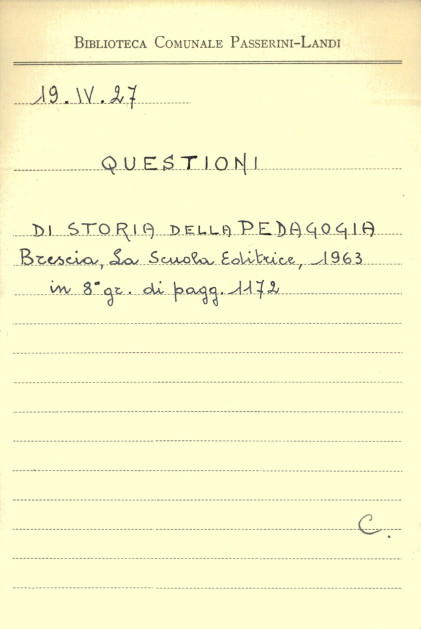 BIBLIOTECA COMUNALE PASSERINI-LANDI
19.IV.27
QUESTIONI
DI STORIA DELLA PEDAGOGIA
Brescia, La Scuola Editrice, 1963
in 8° gr. di pagg. 1172
C.